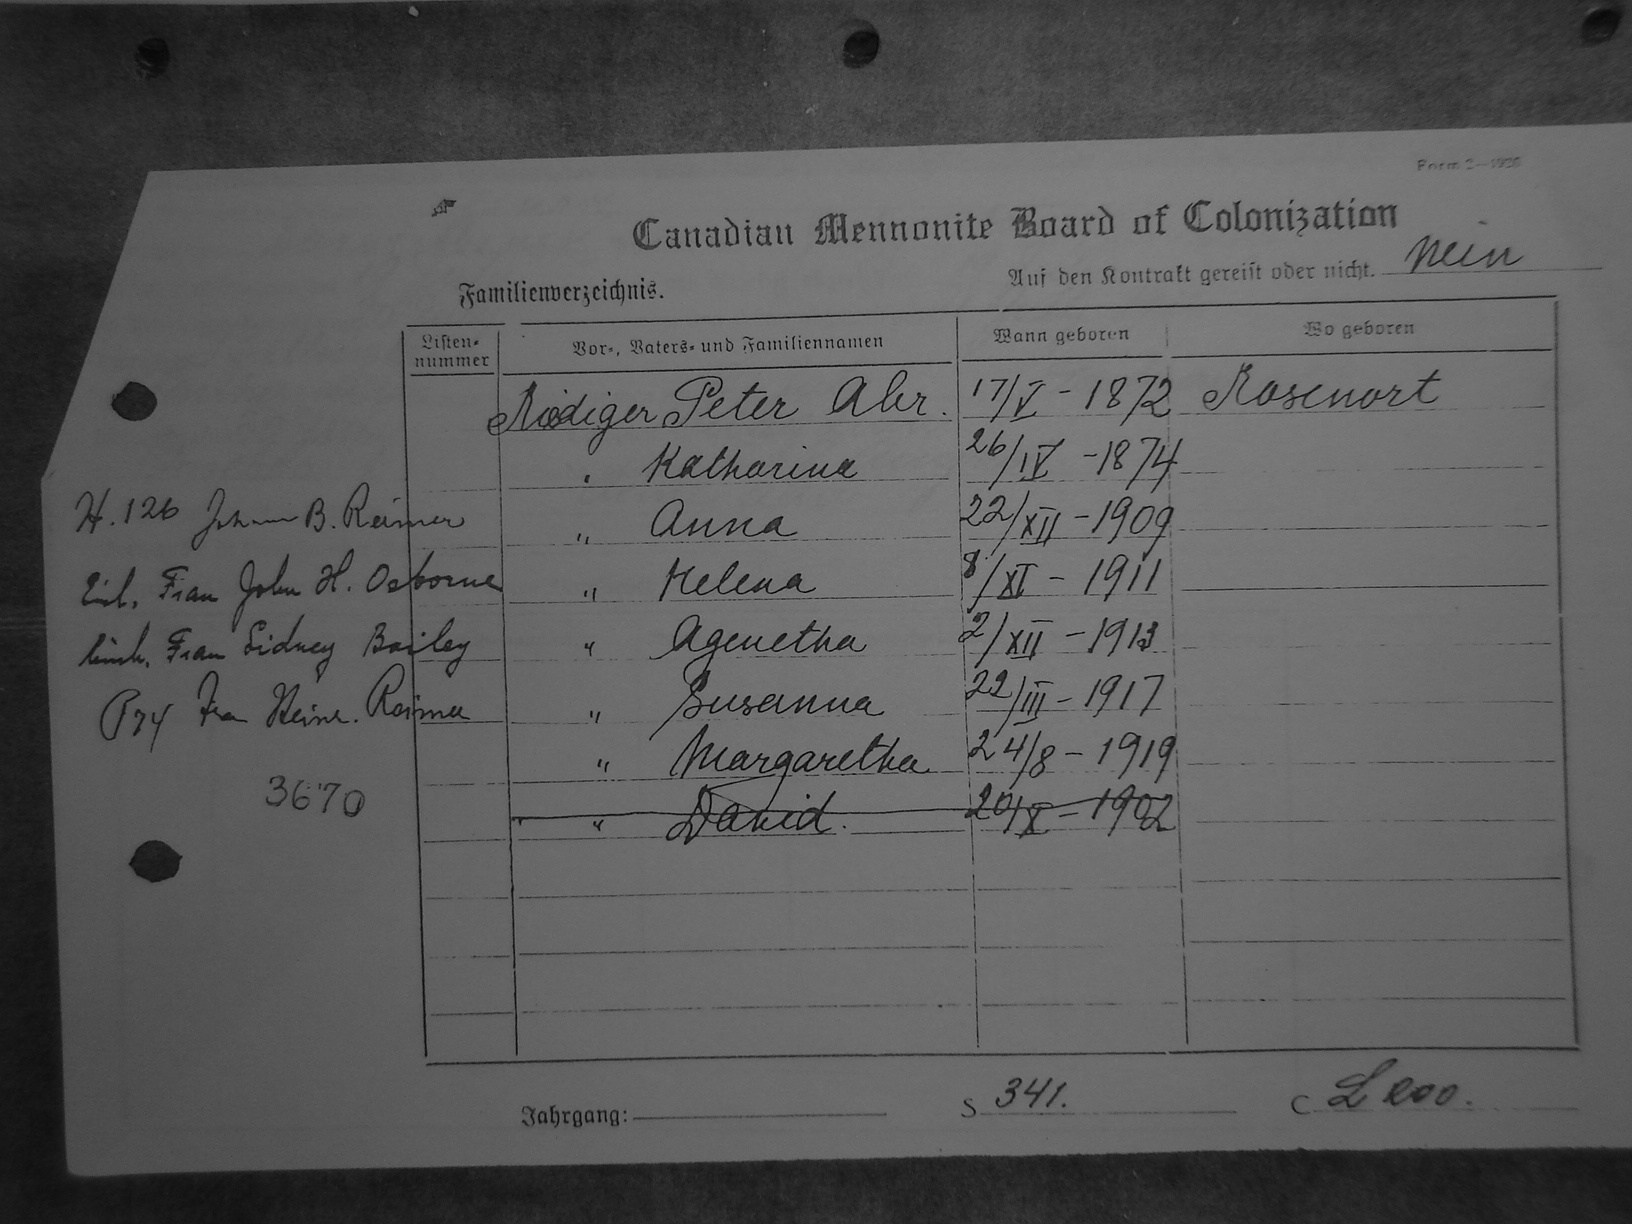 Form 2—1926
Canadian Mennonite Board of Colonization
Familienverzeichnis.
Auf den Kontrakt gereist oder nicht. Nein
Listen-nummer Vor-, Vaters- und Familiennamen Wann geboren Wo geboren
Rödiger Peter Abr. 17/V - 1872 Rosenort
" Katharina 26/IV - 1874
H. 126 Johann B. Reimer " Anna 22/XII - 1909
Frau John H. Osborne " Helena 8/XI - 1911
Frau Sidney Bailey " Agenetha 2/XII - 1913
P74 Frau Heinr. Reimer " Susanna 22/III - 1917
" Margaretha 24/8 - 1919
3670
" David. 20/X - 1902
Jahrgang: S 341. C L 200.